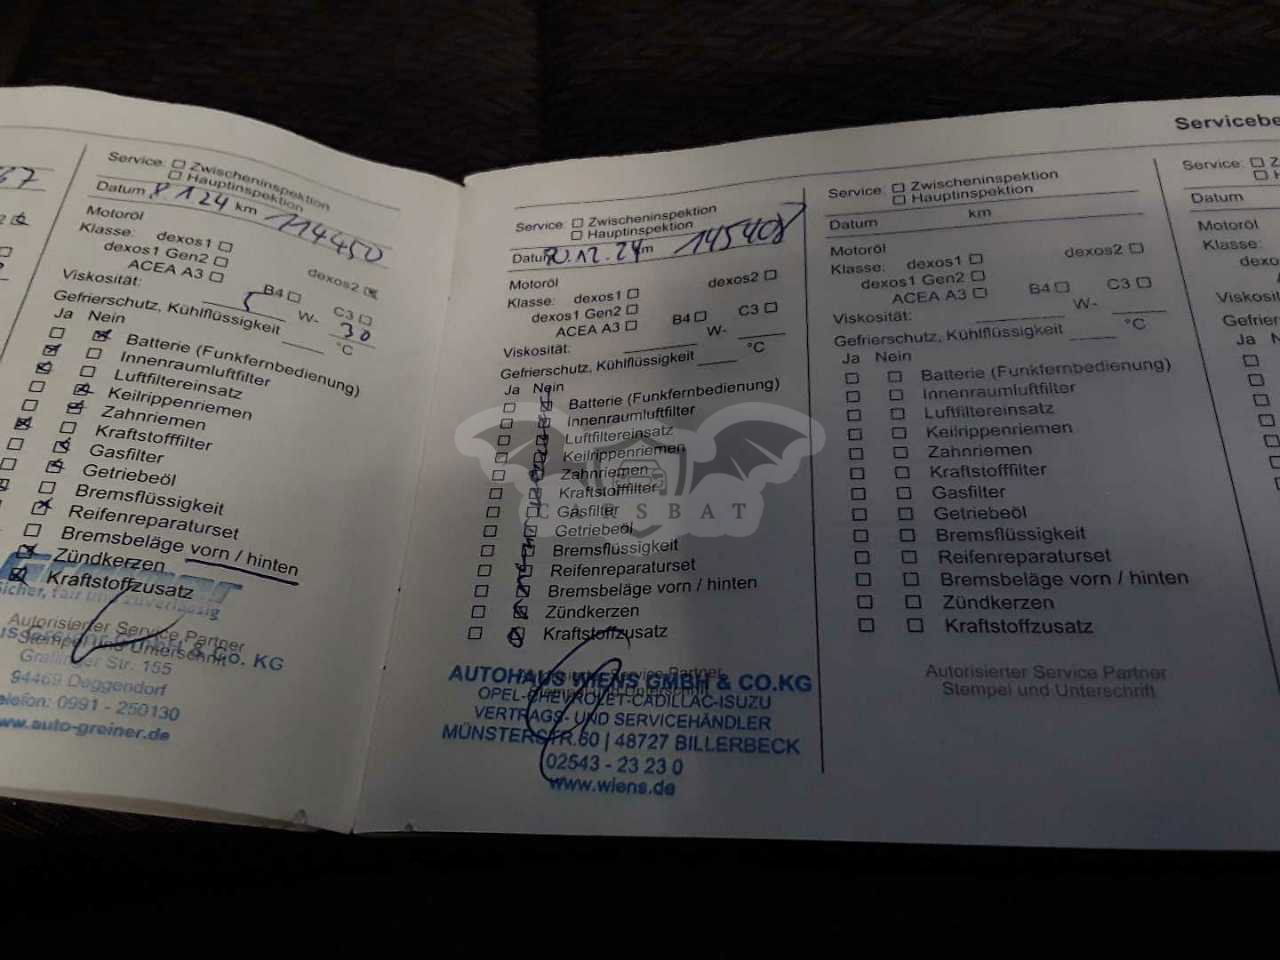 67
Service: Zwischeninspektion
Hauptinspektion
Datum 8.1.24 km 114450
Motoröl
Klasse: dexos1 dexos2
dexos1 Gen2
ACEA A3 B4 C3
Viskosität: 5 W- 30
Gefrierschutz, Kühlflüssigkeit °C
Ja Nein
Batterie (Funkfernbedienung)
Innenraumluftfilter
Luftfiltereinsatz
Keilrippenriemen
Zahnriemen
Kraftstofffilter
Gasfilter
Getriebeöl
Bremsflüssigkeit
Reifenreparaturset
Bremsbeläge vorn / hinten
Zündkerzen
Kraftstoffzusatz
sicher, fair und zuverlässig
Autorisierter Service Partner
Stempel und Unterschrift
& Co. KG
Graflinger Str. 155
94469 Deggendorf
Telefon: 0991 - 250130
www.auto-greiner.de
Service: Zwischeninspektion
Hauptinspektion
Datum 10.12.24 km 145408
Motoröl
Klasse: dexos1 dexos2
dexos1 Gen2
ACEA A3 B4 C3
Viskosität: W-
Gefrierschutz, Kühlflüssigkeit °C
Ja Nein
Batterie (Funkfernbedienung)
Innenraumluftfilter
Luftfiltereinsatz
Keilrippenriemen
Zahnriemen
Kraftstofffilter
Gasfilter
Getriebeöl
Bremsflüssigkeit
Reifenreparaturset
Bremsbeläge vorn / hinten
Zündkerzen
Kraftstoffzusatz
Autorisierter Service Partner
Stempel und Unterschrift
AUTOHAUS WIENS GMBH & CO.KG
OPEL-CHEVROLET-CADILLAC-ISUZU
VERTRAGS- UND SERVICEHÄNDLER
MÜNSTERSTR.60 | 48727 BILLERBECK
02543 - 23 23 0
www.wiens.de
CARSBAT
Servicebe
Service: Zwischeninspektion
Hauptinspektion
Datum km
Motoröl
Klasse: dexos1 dexos2
dexos1 Gen2
ACEA A3 B4 C3
Viskosität: W-
Gefrierschutz, Kühlflüssigkeit °C
Ja Nein
Batterie (Funkfernbedienung)
Innenraumluftfilter
Luftfiltereinsatz
Keilrippenriemen
Zahnriemen
Kraftstofffilter
Gasfilter
Getriebeöl
Bremsflüssigkeit
Reifenreparaturset
Bremsbeläge vorn / hinten
Zündkerzen
Kraftstoffzusatz
Autorisierter Service Partner
Stempel und Unterschrift
Service: Z
H
Datum
Motoröl
Klasse:
dexo
Viskositä
Gefrier
Ja N